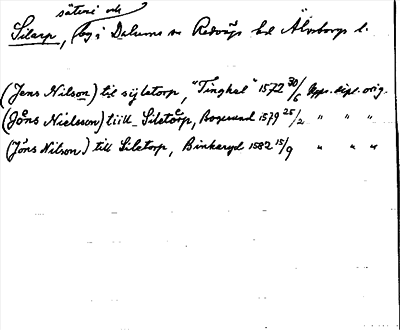 säteri och
Silarp, by i Dalums sn Redvägs hd Älvsborgs l.
(Jens Nilson) til sijletorp, "Tinghal" 1572 30/6 Upps. dipl. orig.
(Jöns Nielsson) tiill Siletorp, Bogesund 1579 25/2 " " "
(Jöns Nilson) till Siletorp, Binkeryd 1582 15/9 " " "